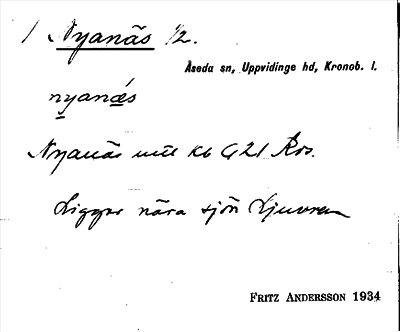 1 Nyanäs 1/2.
Åseda sn, Uppvidinge hd, Kronob. l.
nyanä́s
Nyanäs Kb G 21 Ros.
Ligger nära sjön Ljuvren
FRITZ ANDERSSON 1934